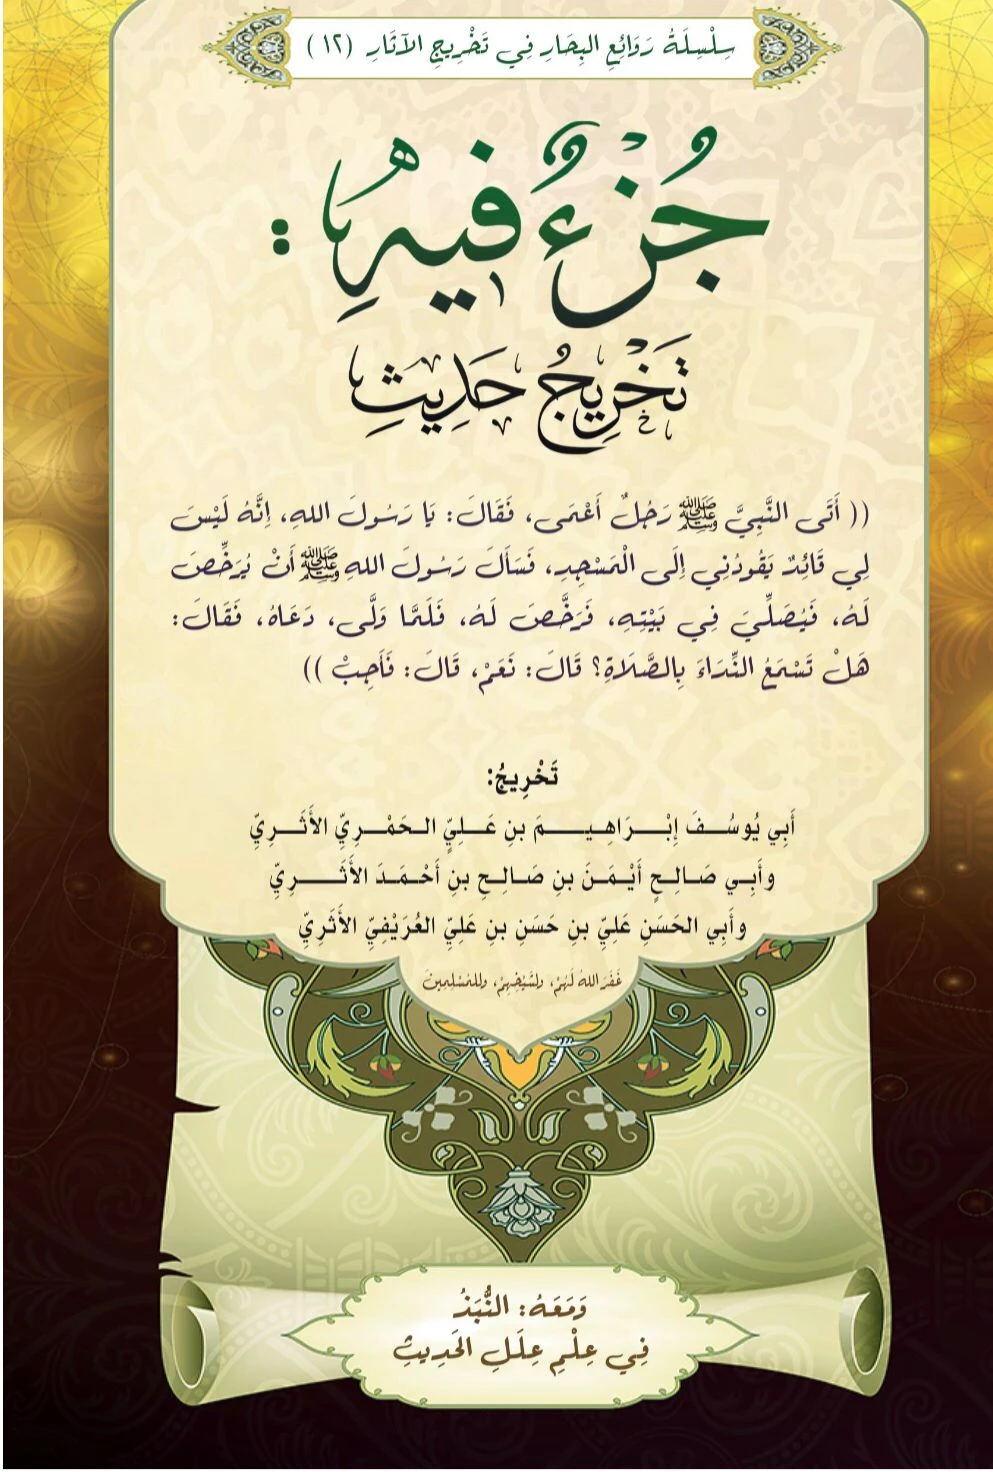 سِلْسِلَةُ رَوَائِعِ البِحَارِ فِي تَخْرِيجِ الآثَارِ (١٢)
جُزْءٌ فِيهِ:
تَخْرِيجُ حَدِيثِ
(( أَتَى النَّبِيَّ ﷺ رَجُلٌ أَعْمَى، فَقَالَ: يَا رَسُولَ اللهِ، إِنَّهُ لَيْسَ
لِي قَائِدٌ يَقُودُنِي إِلَى الْمَسْجِدِ، فَسَأَلَ رَسُولَ اللهِ ﷺ أَنْ يُرَخِّصَ
لَهُ، فَيُصَلِّيَ فِي بَيْتِهِ، فَرَخَّصَ لَهُ، فَلَمَّا وَلَّى، دَعَاهُ، فَقَالَ:
هَلْ تَسْمَعُ النِّدَاءَ بِالصَّلَاةِ؟ قَالَ: نَعَمْ، قَالَ: فَأَجِبْ ))
تَخْرِيجُ:
أَبِي يُوسُفَ إِبْرَاهِيمَ بنِ عَلِيٍّ الحَمْرِيِّ الأَثَرِيِّ
وأَبِي صَالِحٍ أَيْمَنَ بنِ صَالِحِ بنِ أَحْمَدَ الأَثَرِيِّ
وأَبِي الحَسَنِ عَلِيِّ بنِ حَسَنِ بنِ عَلِيٍّ العُرَيْفِيِّ الأَثَرِيِّ
غَفَرَ اللهُ لَهُمْ، ولشَيْخِهِمْ، وللمُسْلِمِينَ
وَمَعَهُ: النُّبَذُ
فِي عِلْمِ عِلَلِ الحَدِيثِ